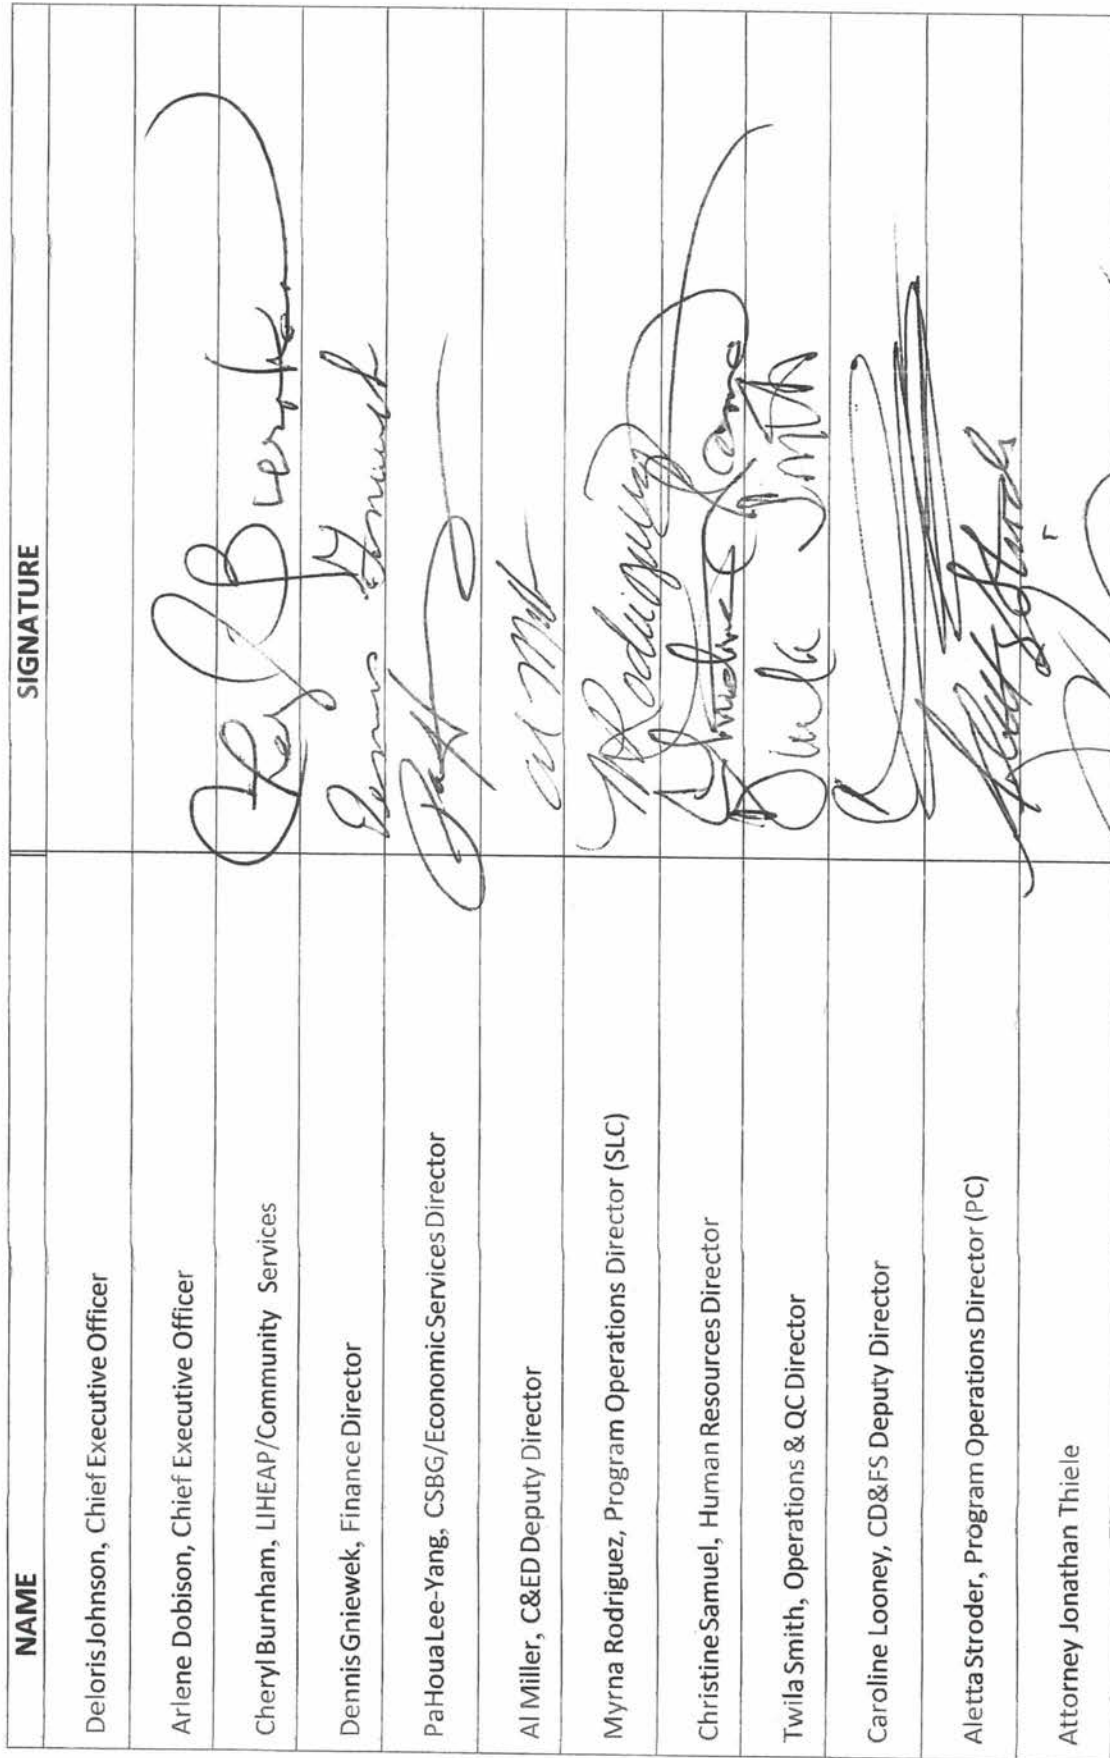 NAME SIGNATURE
Deloris Johnson, Chief Executive Officer
Arlene Dobison, Chief Executive Officer
Cheryl Burnham, LIHEAP/Community Services
Dennis Gniewek, Finance Director Dennis Gniewek
PaHoua Lee-Yang, CSBG/Economic Services Director
Al Miller, C&ED Deputy Director Al Mill
Myrna Rodriguez, Program Operations Director (SLC) M Rodriguez
Christine Samuel, Human Resources Director
Twila Smith, Operations & QC Director Twila Smith
Caroline Looney, CD&FS Deputy Director
Aletta Stroder, Program Operations Director (PC)
Attorney Jonathan Thiele